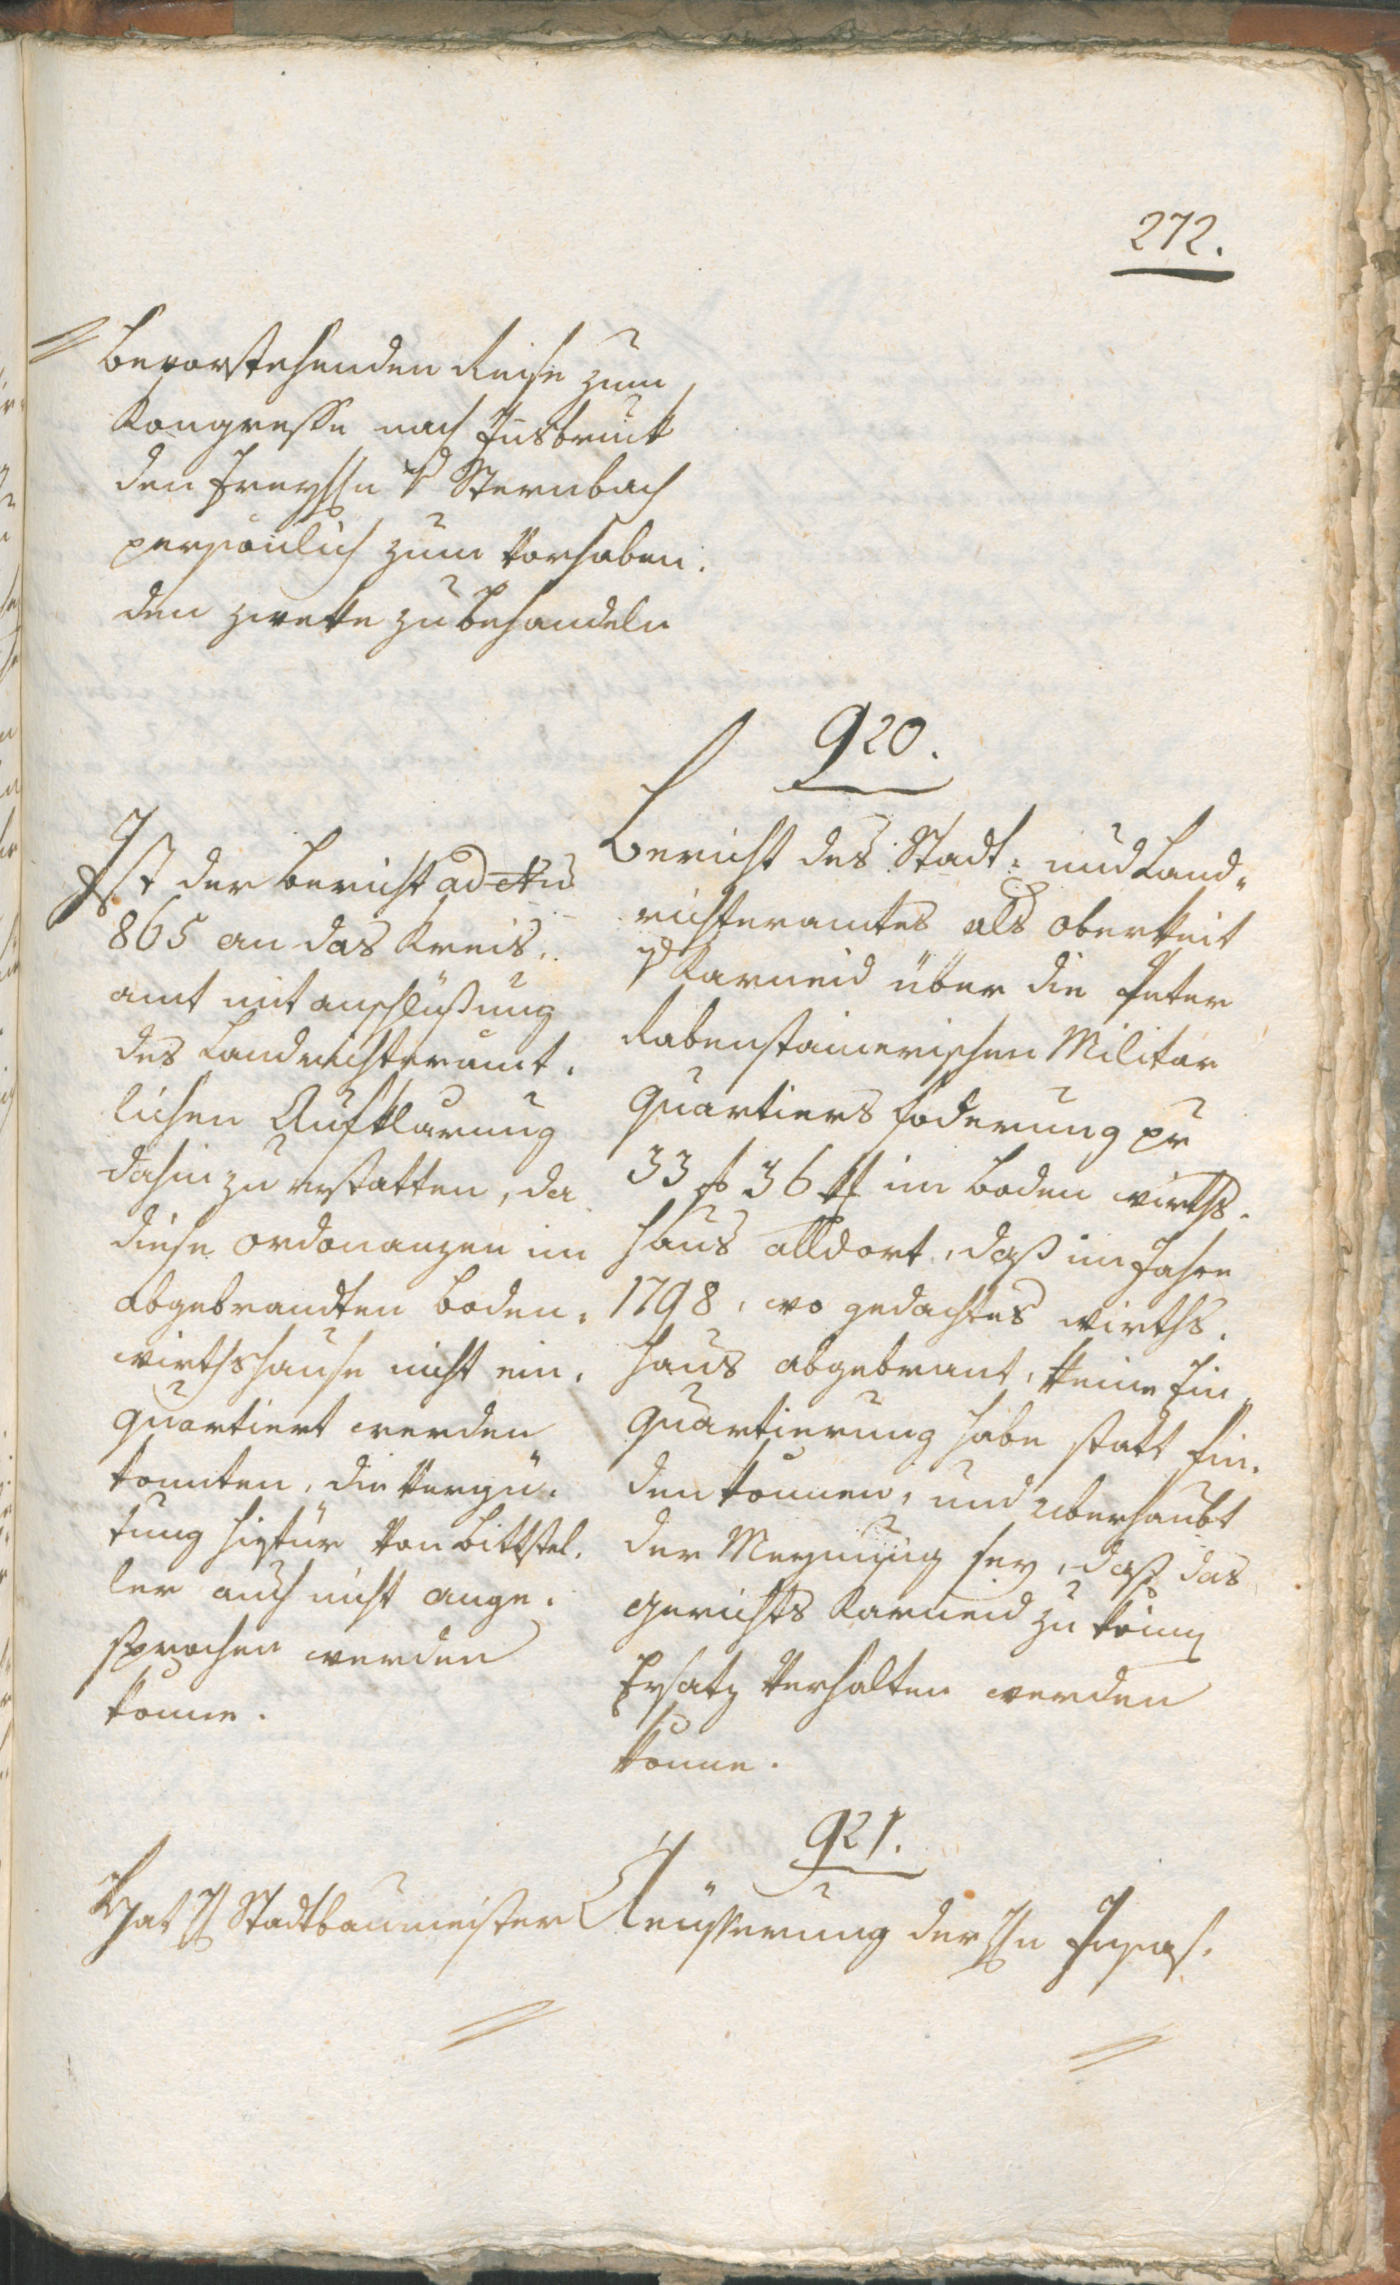 272.
bevorstehenden Reise zum
Kongresse nach Jnsbruck
den Freyhhn v Sternbach
persönlich zum vorhaben-
den zwekke zu behandeln
920.
Jst der Bericht ad Nus
865 an das Kreis-
amt mit anschlüßung
des Landrichteramt-
lichen Aufklärung
dahin zu erstatten, da
diese ordonanzen im
abgebrandten Boden-
wirthshause nicht ein-
quartiert werden
konnten, die Vergü-
tung hiefür von Bittstel-
ler auch nicht ange-
sprochen werden
könne.
Bericht des Stadt- und Land-
richteramtes als oberkeit
v Karneid über die Peter
Rabensteinerischen Militar
Quartiers foderung pr
33 f 36 kr im Boden wirths-
haus alldort, daß im Jahre
1798, wo gedachtes wirths-
haus abgebrant, keine Ein-
quartierung habe statt fin-
den können, und überhaubt
der Meynung sey, daß das
gerichts Karneid zu keinen
Ersatz verhalten werden
könne.
921.
Hat H Stadtbaumeister
Aeusserung der Hn